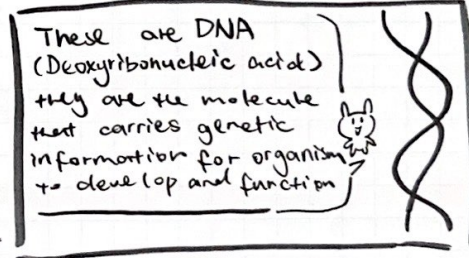 These are DNA
(Deoxyribonucleic acid)
they are the molecule
that carries genetic
information for organism
to develop and function